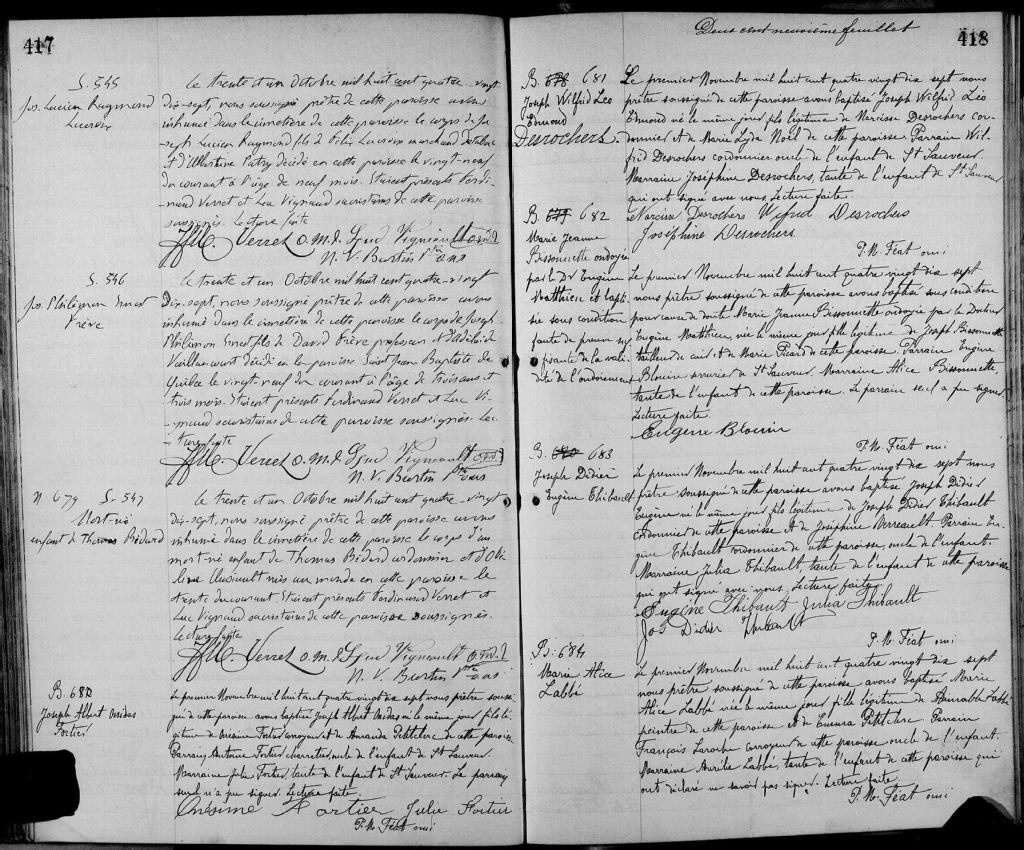 417
S. 545
Jos. Lucien Raymond
Lacroix
Le trente et un Octobre mil huit cent quatre-vingt
dix-sept, nous soussigné prêtre de cette paroisse avons
inhumé dans le cimetière de cette paroisse le corps de Jo-
seph Lucien Raymond fils de Félix Lacroix marchand de
et d'Albertine Patry décédé en cette paroisse le vingt-neuf
du courant à l'âge de neuf mois. Etaient présents Ferdi-
nand Verret et Luc Vignaud sacristains de cette paroisse
soussignés. Lecture faite
Verret o.m.d. Luc Vignault
N. V. Burtin Ptre
S. 546
Jos. Philémon
Frève
Le trente et un Octobre mil huit cent quatre-vingt
dix-sept, nous soussigné prêtre de cette paroisse avons
inhumé dans le cimetière de cette paroisse le corps de Joseph
Philémon fils de David Frève professeur et d'Adélaïde
Vaillancourt décédé en la paroisse Saint Jean Baptiste de
Québec le vingt-neuf du courant à l'âge de trois ans et
trois mois. Etaient présents Ferdinand Verret et Luc Vi-
gnaud sacristains de cette paroisse soussignés. Lec-
ture faite
Verret o.m.d. Luc Vignault
N. V. Burtin Ptre
N 679 S. 547
Mort-né
enfant de Thomas Bédard
Le trente et un Octobre mil huit cent quatre-vingt
dix-sept, nous soussigné prêtre de cette paroisse avons
inhumé dans le cimetière de cette paroisse le corps d'un
mort-né enfant de Thomas Bédard cordonnier et d'Obé-
line né au monde en cette paroisse le
trente du courant Etaient présents Ferdinand Verret et
Luc Vignaud sacristains de cette paroisse soussignés.
Lecture faite
Verret o.m.d. Luc Vignault
N. V. Burtin Ptre
B. 680
Joseph Albert Onidas
Fortier
Le premier Novembre mil huit cent quatre vingt dix sept nous prêtre soussi-
gné de cette paroisse avons baptisé Joseph Albert Onidas né le même jour fils lé-
gitime de Onésime Fortier corroyeur et de Amanda Petitclerc de cette paroisse
Parrain Antoine Fortier charretier oncle de l'enfant de St Sauveur
Marraine Julie Fortier, tante de l'enfant de St Sauveur. Le parrain
seul n'a pu signer. Lecture faite.
Onésime Fortier Julie Fortier
P. M. Fiat omi
Deux cent neuvième feuillet
418
B. 678 681
Joseph Wilfrid Leo
Edmond
Desrochers.
Le premier Novembre mil huit cent quatre vingt dix sept nous
prêtre soussigné de cette paroisse avons baptisé Joseph Wilfrid Léo
Edmond né le même jour fils légitime de Narcisse Desrochers cor-
donnier et de Marie Lyda Noël de cette paroisse. Parrain Wil-
frid Desrochers cordonnier oncle de l'enfant de St Sauveur.
Marraine Joséphine Desrochers, tante de l'enfant de St Sauveur
qui ont signé avec nous. Lecture faite.
Narcisse Desrochers Wifrid Desrochers
Josephine Desrochers
P. M. Fiat omi
B. 679 682
Marie Jeanne
Bissonnette ondoyée
par le Dr Eugène
Matthieu et bapti-
sée sous condition
faute de preuve suf-
fisante de la vali-
dité de l'ondoiement
Le premier Novembre mil huit cent quatre vingt dix sept
nous prêtre soussigné de cette paroisse avons baptisé sous condition
pour cause de doute Marie Jeanne Bissonnette ondoyée par le Docteur
Eugène Matthieu, née le même jour fille légitime de Joseph Bissonnette
tailleur de cuir et de Marie Picard de cette paroisse. Parrain Eugène
Blouin serrurier de St Sauveur. Marraine Alice Bissonnette,
tante de l'enfant de cette paroisse. Le parrain seul a pu signer
Lecture faite.
Eugène Blouin
P. M. Fiat omi
B. 680 683
Joseph Didier
Eugène Thibault
Le premier Novembre mil huit cent quatre vingt dix sept nous
prêtre soussigné de cette paroisse avons baptisé Joseph Didier
Eugène né le même jour fils légitime de Joseph Didier Thibault
cordonnier de cette paroisse et de Joséphine Verreault Parrain Eu-
gène Thibault cordonnier de cette paroisse, oncle de l'enfant.
Marraine Julia Thibault, tante de l'enfant de cette paroisse
qui ont signé avec nous. Lecture faite
Eugène Thibault Julia Thibault
Jos Didier Thibault
P. M. Fiat omi
B. 684
Marie Alice
Labbé
Le premier Novembre mil huit cent quatre vingt dix sept
nous prêtre soussigné de cette paroisse avons baptisé Marie
Alice Labbé née le même jour fille légitime de Aimable Labbé
peintre de cette paroisse et de Emma Petitclerc Parrain
François Laroche corroyeur de cette paroisse oncle de l'enfant.
Marraine Aurélie Labbé, tante de l'enfant de cette paroisse qui
ont déclaré ne savoir pas signer. Lecture faite.
P. M. Fiat omi